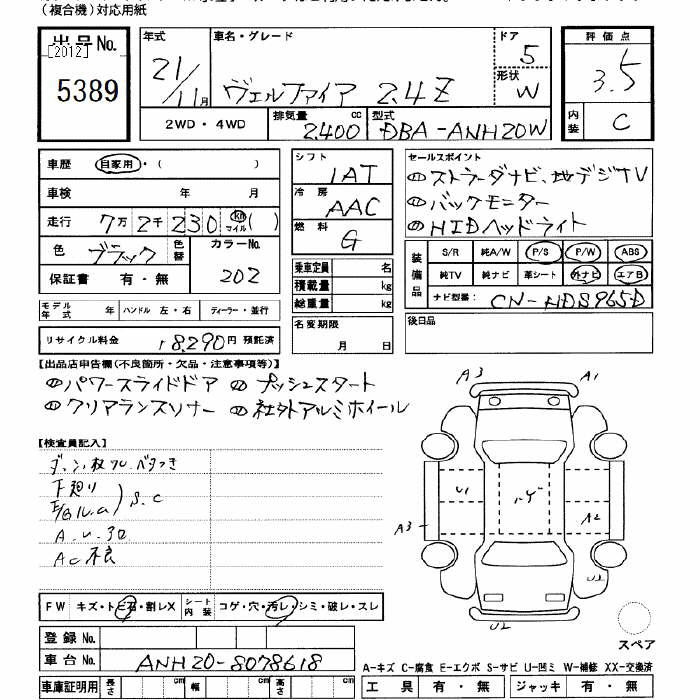 (複合機)対応用紙
出品No.
[2012]
5389
年式 車名・グレード ドア 評価点
21/11月 ヴェルファイア 2.4Z 5 3.5
形状 W
2WD・4WD 排気量 2400 cc 型式 DBA-ANH20W
内装 C
車歴 自家用・( )
車検 年 月
走行 7万2千230 km マイル ( )
色 ブラック 色替 カラーNo. 202
保証書 有・無
モデル年式 年 ハンドル 左・右 ディーラー・並行
リサイクル料金 18,290円 預託済
シフト 1AT
冷房 AAC
燃料 G
乗車定員 名
積載量 kg
総重量 kg
名変期限 月 日
セールスポイント
ストラーダナビ、地デジTV
バックモニター
HIDヘッドライト
装備品 S/R 純A/W P/S P/W ABS
純TV 純ナビ 革シート 外ナビ エアB
ナビ型番: CN-HDS965D
後日品
【出品店申告欄(不良箇所・欠品・注意事項等)】
パワースライドドア プッシュスタート
クリアランスソナー 社外アルミホイール
【検査員記入】
下廻り
S.C
AC不良
FW キズ・トビ石・割レX シート内装 コゲ・穴・汚レ・シミ・破レ・スレ
登録No.
車台No. ANH20-8078618
車庫証明用 長さ cm 幅 cm 高さ cm
A3 A1
U1 A2
A3
U2
スペア
A-キズ C-腐食 E-エクボ S-サビ U-凹ミ W-補修 XX-交換済
工具 有・無 ジャッキ 有・無